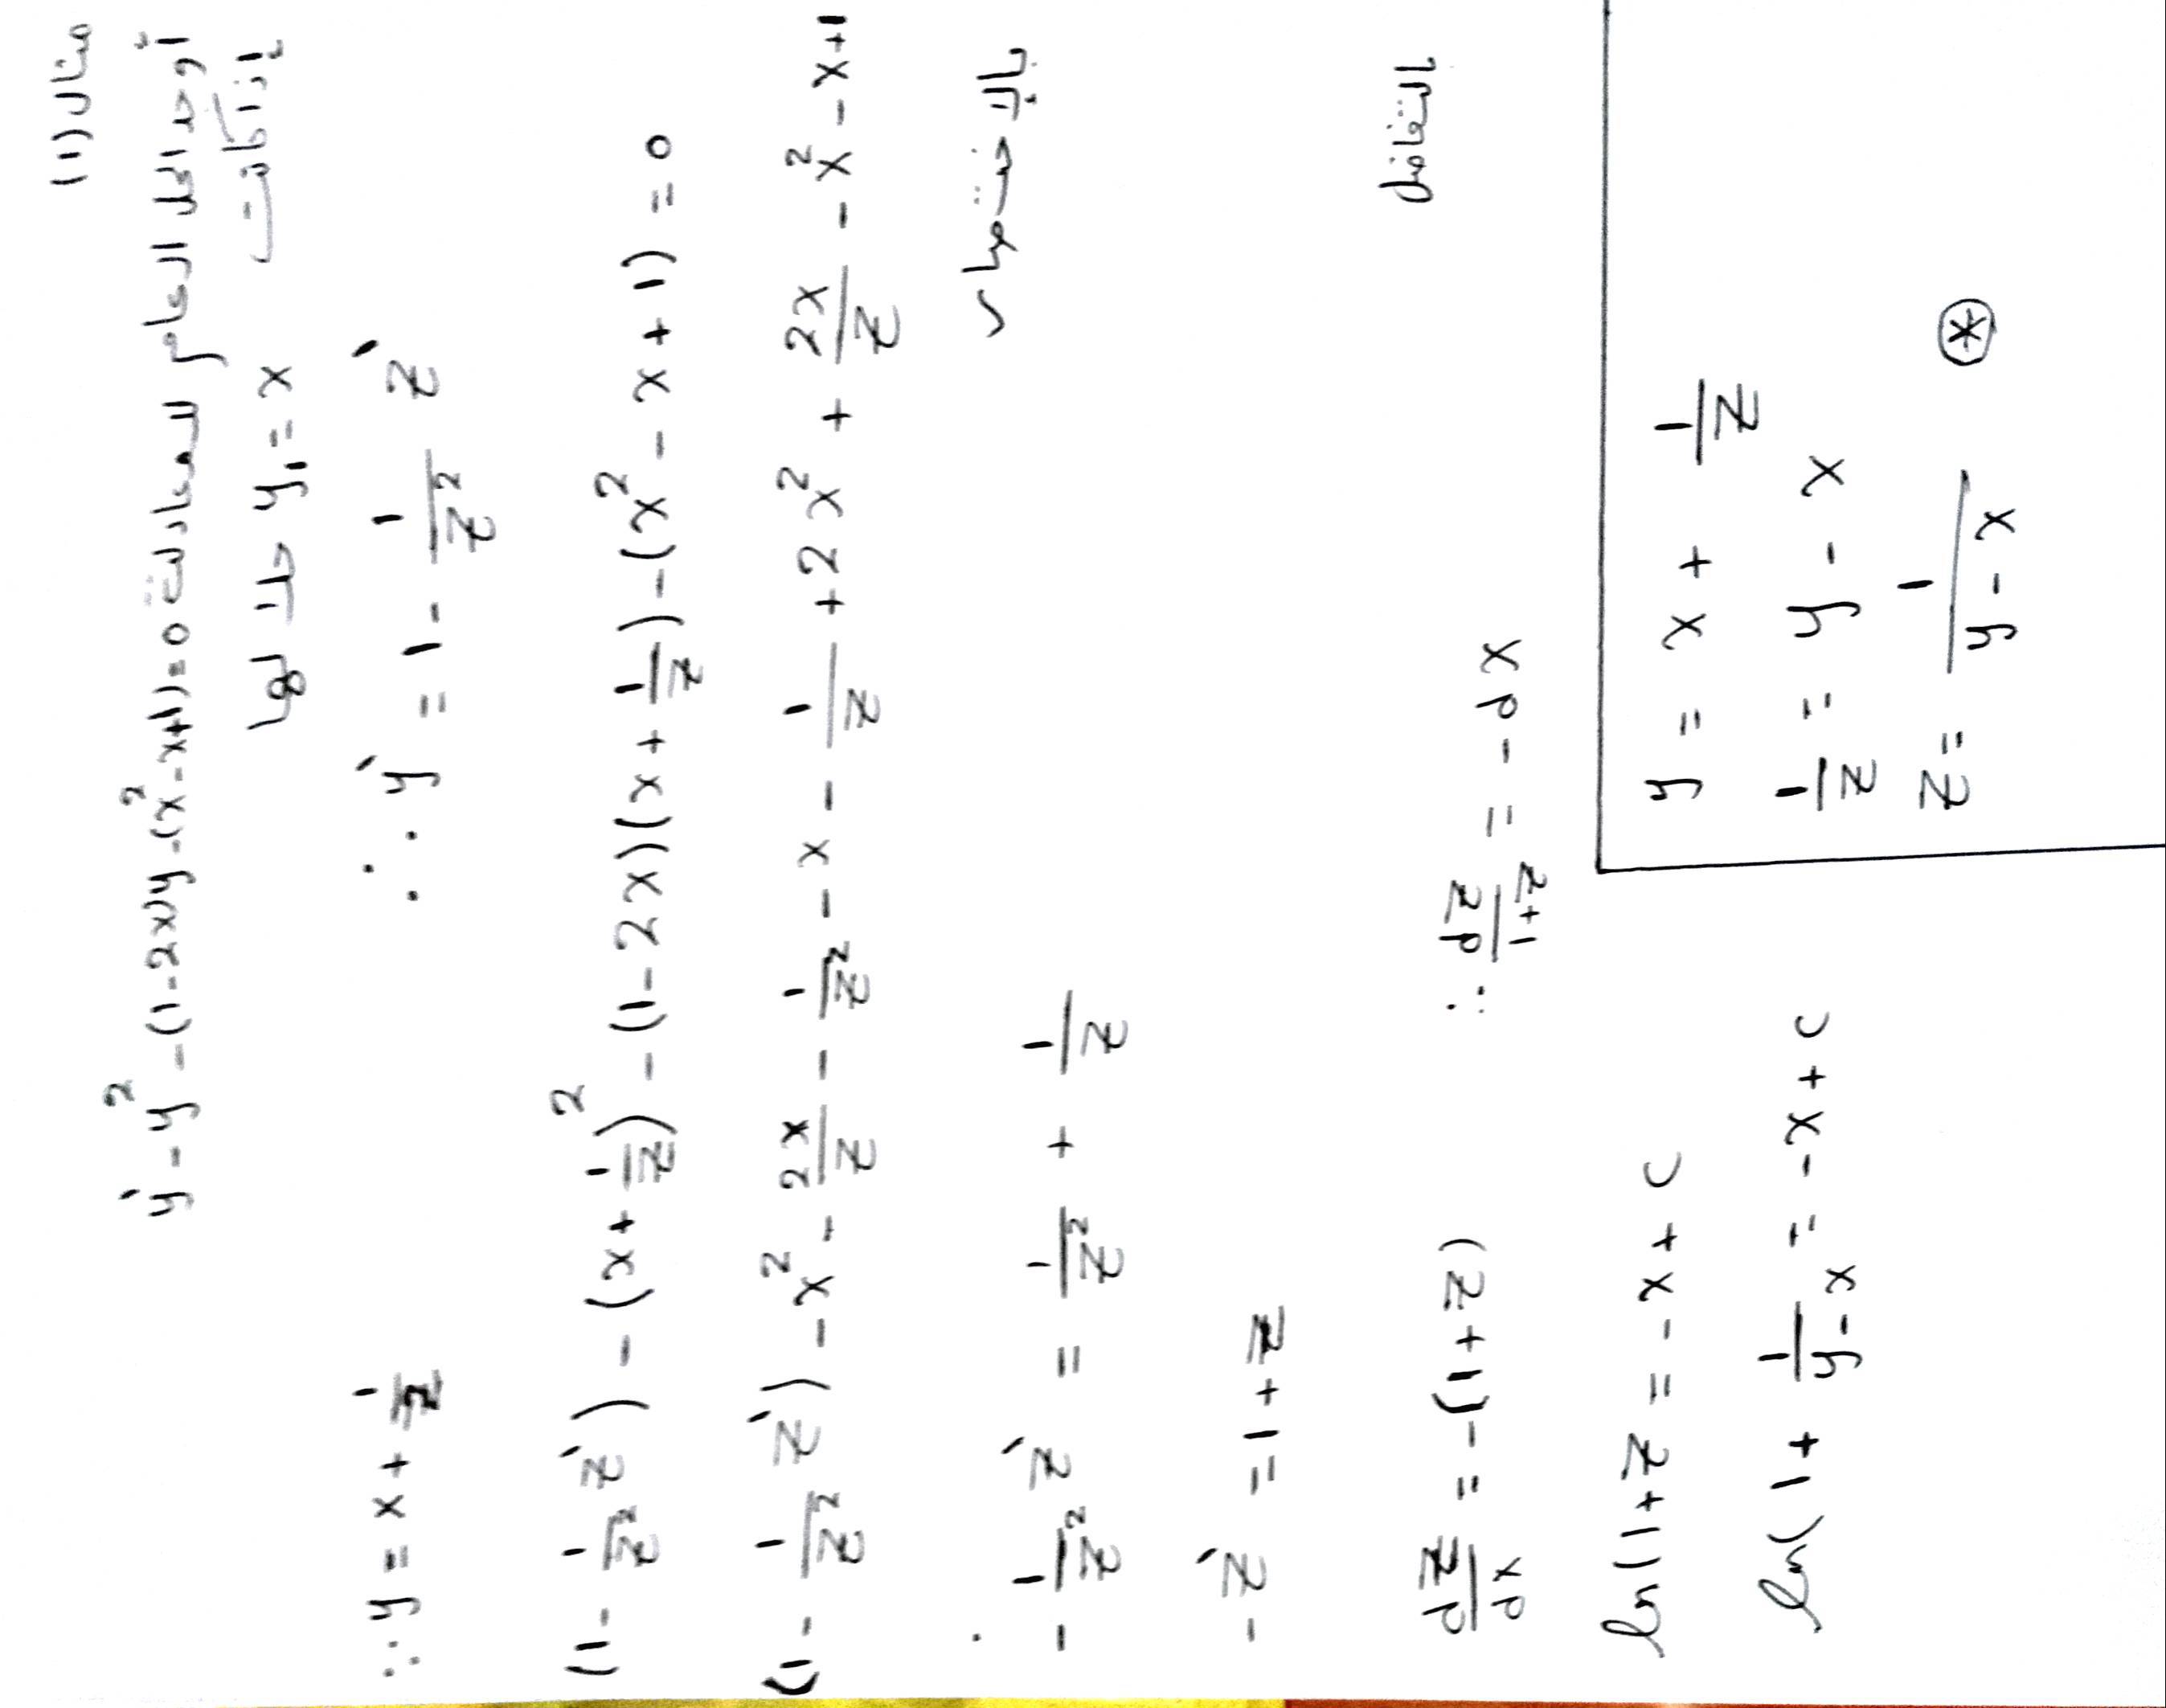 مثال (1)
أوجد الحل العام للمعادلة y` - y² - (1-2x)y - (x²-x+1) = 0
إذا كانت y₁ = x حلا لها
∵ y = x + 1/z ∴ y` = 1 - 1/z² z`
(1 - 1/z² z`) - (x + 1/z)² - (1-2x)(x + 1/z) - (x² - x + 1) = 0
(1 - 1/z² z`) - x² - 2x/z - 1/z² - x - 1/z + 2x² + 2x/z - x² - x + 1
بالإختصار
- 1/z² z` = 1/z² + 1/z
- z` = 1 + z
بالتفاضل
dz/dx = -(1+z) ∴ dz/1+z = -dx
ln(1+z = -x + c
ln(1 + 1/y-x = -x + c
y = x + 1/z
1/z = y - x
z = 1/y-x ⊛